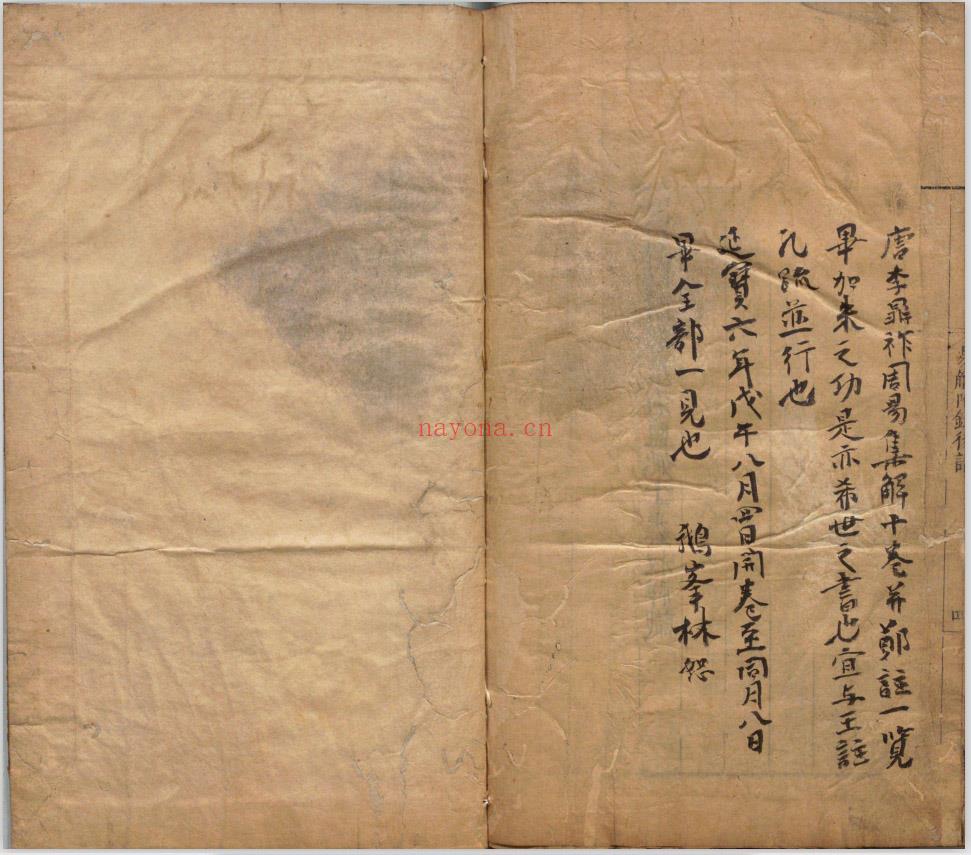 唐李鼎祚周易集解十卷并鄭註一覽
畢加朱之功是亦希世之書也宜与王註
孔疏並行也
延寶六年戊午八月四日開卷至同月八日
畢全部一見也 鵝峯林恕
nayona.cn